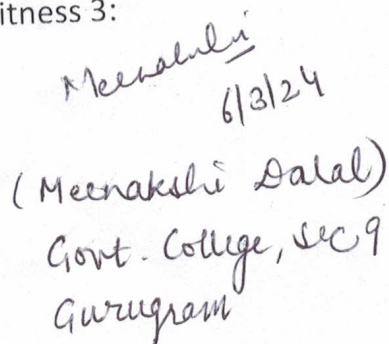 itness 3:
Meenakshi
6/3/24
(Meenakshi Dalal)
Govt. College, Sec 9
Gurugram